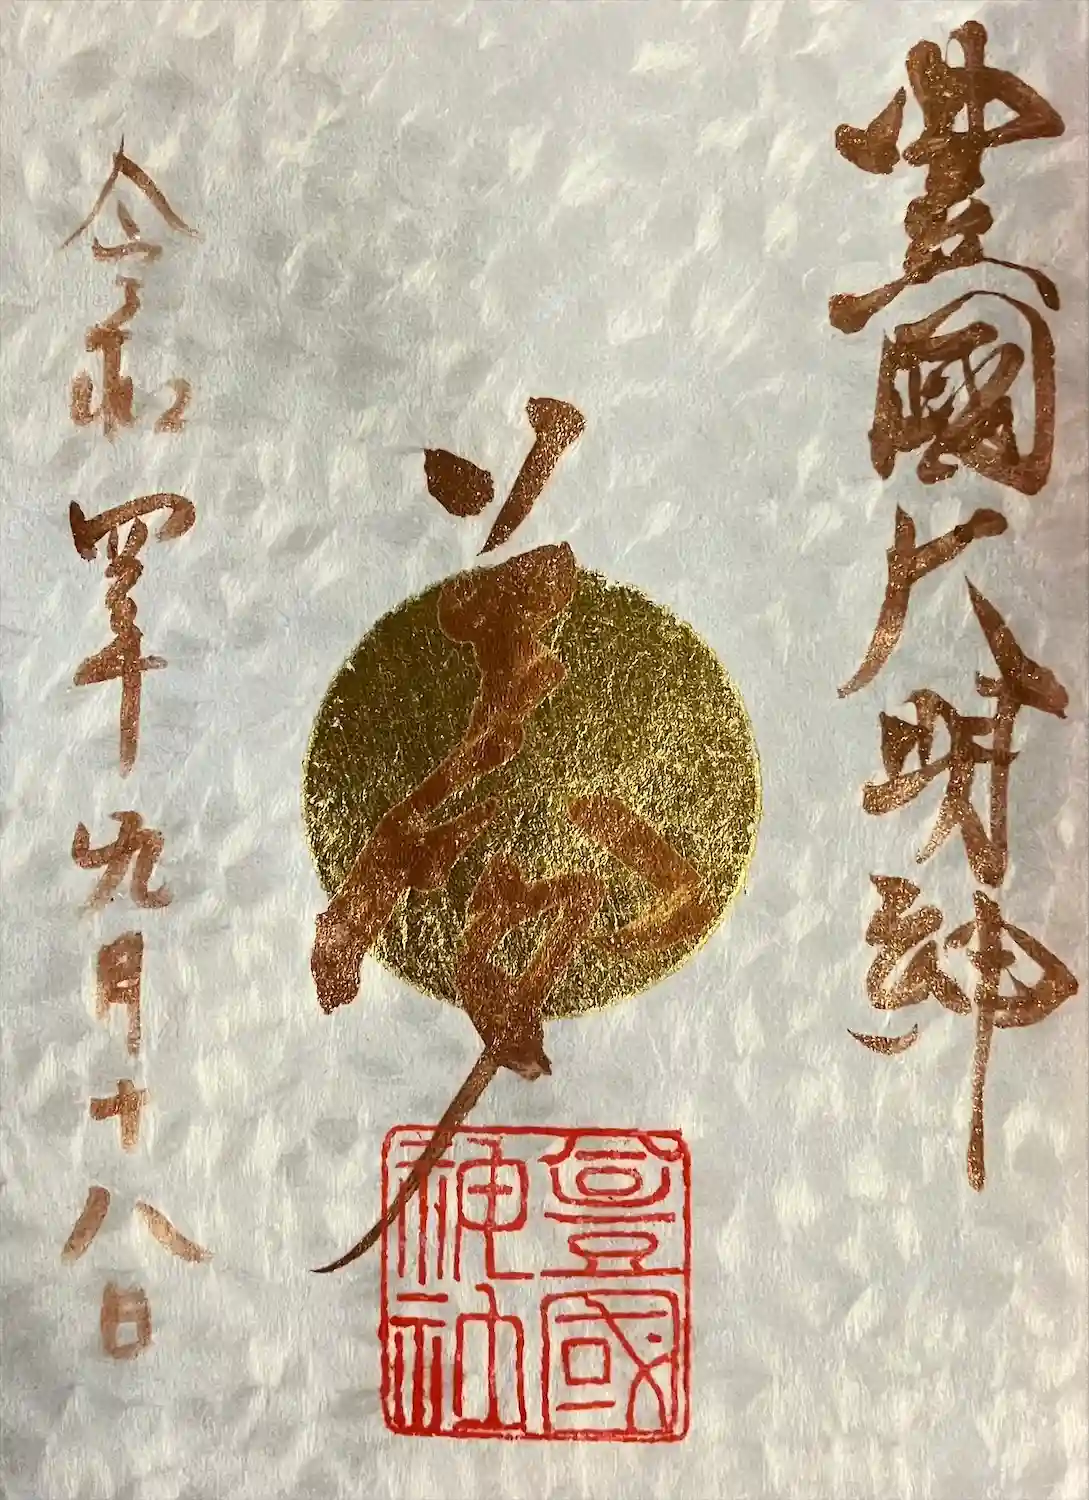 豊國大明神
豊國
神社
令和四年九月十八日